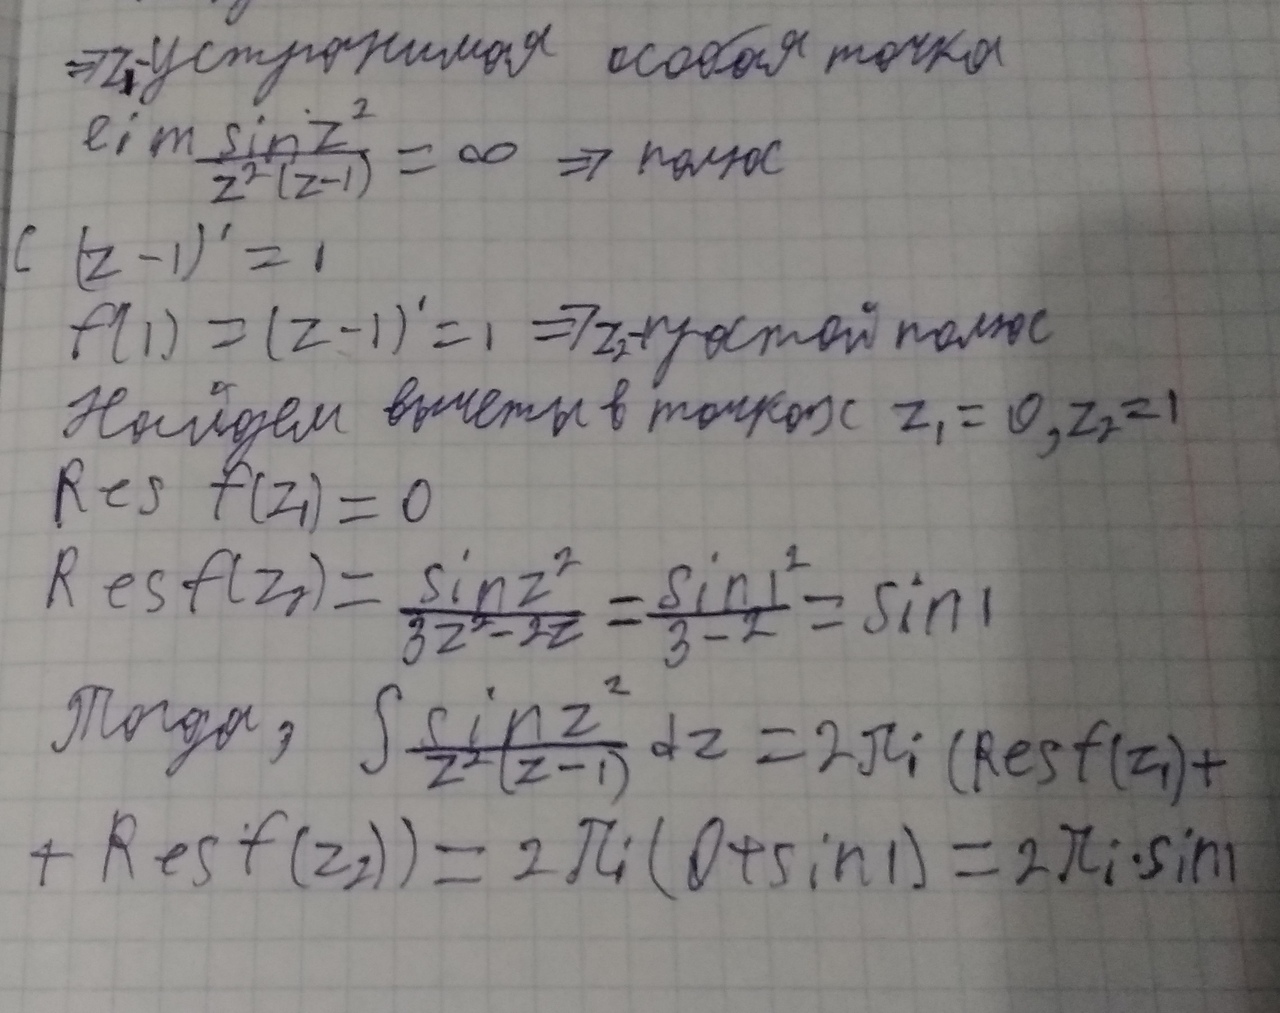 ⇒ z₁-устранимая особая точка
lim sin z² / z²(z-1) = ∞ ⇒ полюс
(z-1)' = 1
f(1) = (z-1)' = 1 ⇒ z₂-простой полюс
Найдем вычеты в точках z₁ = 0, z₂ = 1
Res f(z₁) = 0
Res f(z₂) = sin z² / 3z² - 2z = sin 1² / 3 - 2 = sin 1
Тогда, ∫ sin z² / z²(z-1) dz = 2πi (Res f(z₁) +
+ Res f(z₂)) = 2πi (0 + sin 1) = 2πi · sin 1